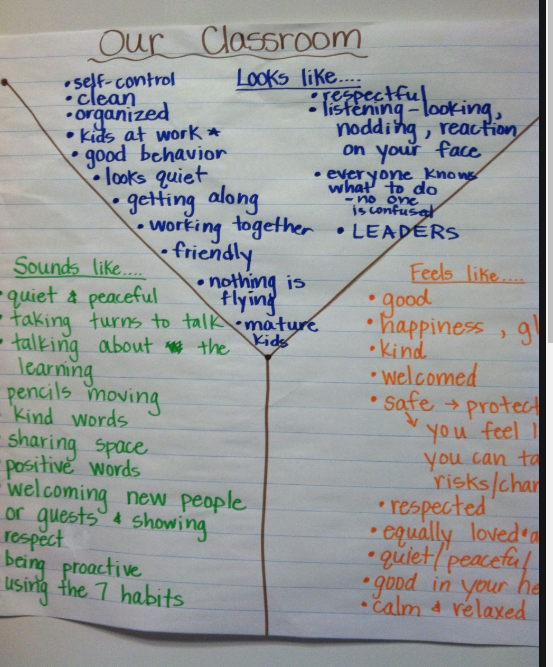 Our Classroom
Looks like....
• self-control
• clean
• organized
• kids at work *
• good behavior
• looks quiet
• getting along
• working together
• friendly
• nothing is
flying
• mature
kids
• respectful
• listening - looking,
nodding, reaction
on your face
• everyone knows
what to do
- no one
is confused
• LEADERS
Sounds like....
• quiet & peaceful
• taking turns to talk
• talking about the
learning
pencils moving
kind words
sharing space
positive words
welcoming new people
or guests & showing
respect
being proactive
using the 7 habits
Feels like....
• good
• happiness,
• kind
• welcomed
• safe → protect
↘ you feel
you can
risks/
• respected
• equally loved •
• quiet/peaceful
• good in your
• calm & relaxed